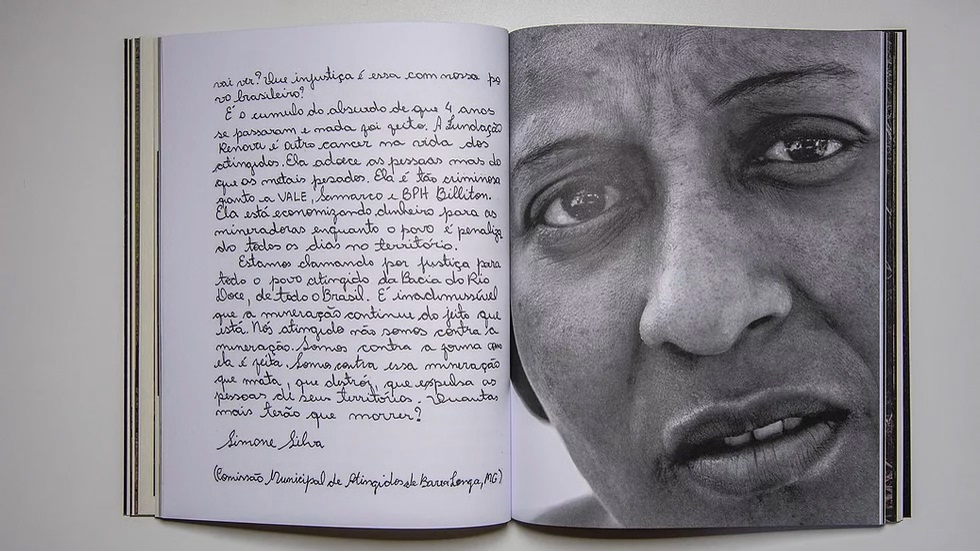 vai ver? Que injustiça é essa com nosso po
vo brasileiro?
É o cumulo do absurdo de que 4 anos
se passaram e nada foi feito. A Fundação
Renova é outro cancer na vida dos
atingidos. Ela adoece as pessoas mas do
que os metais pesados. Ela é tão criminosa
quanto a VALE, Samarco e BPH Billiton.
Ela está economizando dinheiro para as
mineradoras enquanto o povo é penaliza
do todos os dias no território.
Estamos clamando por justiça para
todo o povo atingido da Bacia do Rio
Doce, de todo o Brasil. É inadimissível
que a mineração continue do jeito que
está. Nós atingido não somos contra a
mineração. Somos contra a forma como
ela é feita. Somos contra essa mineração
que mata, que destrói, que expulsa as
pessoas de seus territórios. Quantas
mais terão que morrer?
Simone Silva
(Comissão Municipal de Atingidos de Barra Longa, MG)